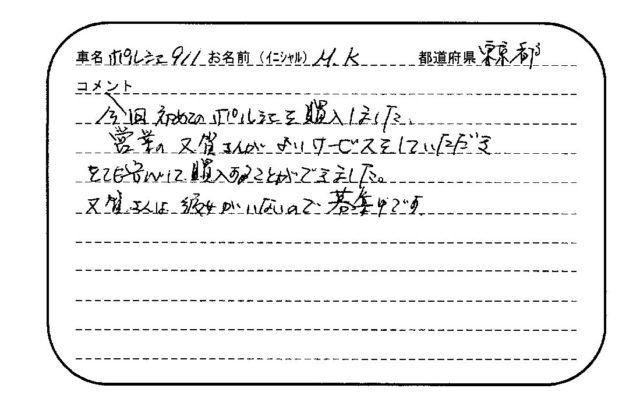 車名 ポルシェ911 お名前(イニシャル) M.K 都道府県 東京都
コメント
今回初めてのポルシェを購入しました。
営業の又賀さんがよいサービスをしていただき
とても安心して購入することができました。
又賀さんは彼女がいないので募集中です。